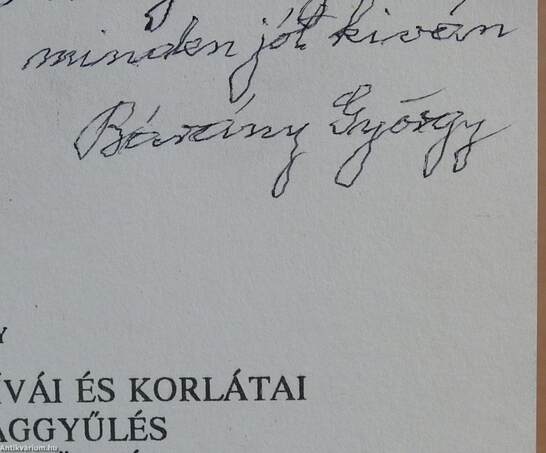 minden jót kíván
Bárány György
Y
ÍVÁI ÉS KORLÁTAI
AGGYŰLÉS
Antikvárium.hu